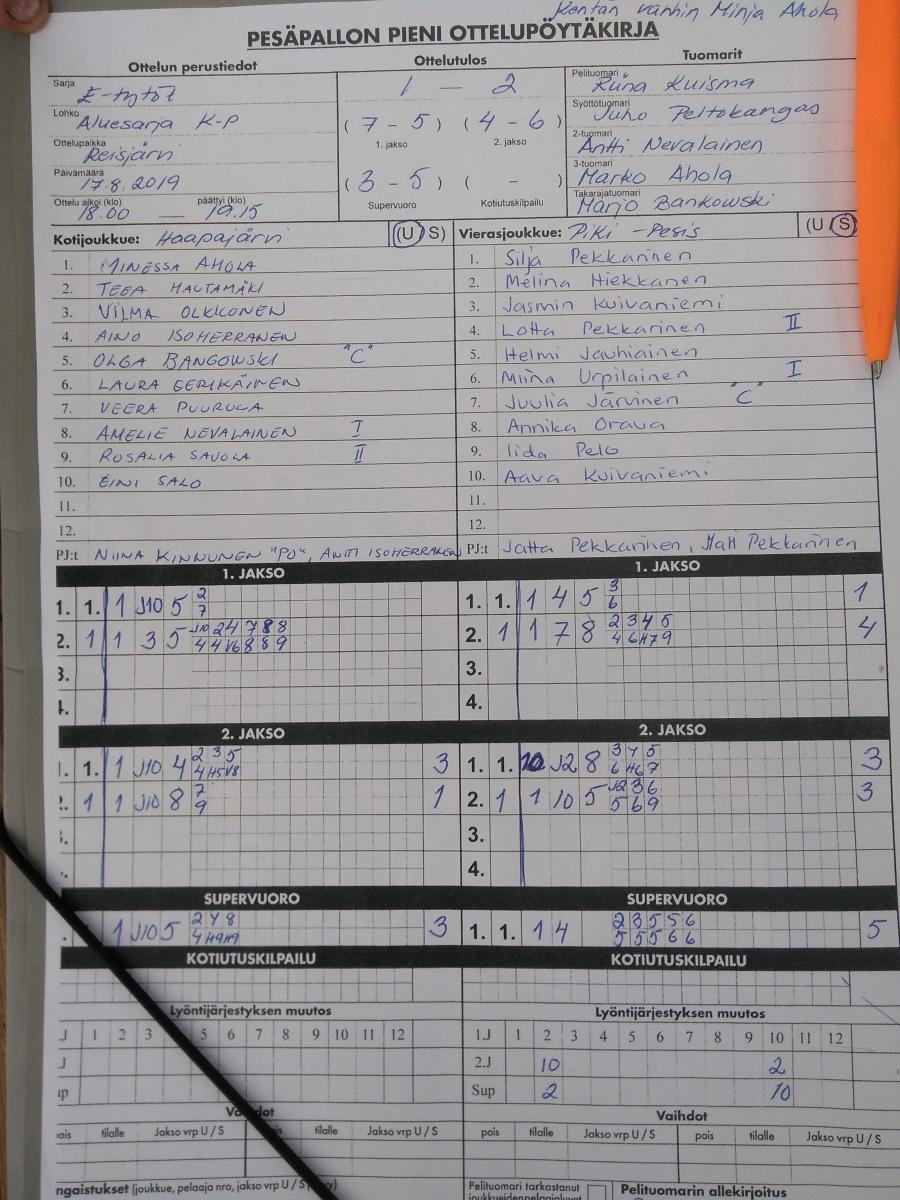 Kentän vanhin Minja Ahola
PESÄPALLON PIENI OTTELUPÖYTÄKIRJA
Ottelun perustiedot
Sarja
E-tytöt
Lohko
Aluesarja K-P
Ottelupaikka
Reisjärvi
Päivämäärä
17.8.2019
Ottelu alkoi (klo) päättyi (klo)
18.00 — 19.15
Ottelutulos
1 — 2
( 7 - 5 ) ( 4 - 6 )
1. jakso 2. jakso
( 3 - 5 ) ( - )
Supervuoro Kotiutuskilpailu
Tuomarit
Pelituomari
Riina Kuisma
Syöttötuomari
Juho Peltokangas
2-tuomari
Antti Nevalainen
3-tuomari
Marko Ahola
Takarajatuomari
Marjo Bankowski
Kotijoukkue: Haapajärvi (U S)
1. MINESSA AHOLA
2. TEEA HAUTAMÄKI
3. VILMA OLKKONEN
4. AINO ISOHERRANEN
5. OLGA BANGOWSKI "C"
6. LAURA EERIKÄINEN
7. VEERA PUURULA
8. AMELIE NEVALAINEN I
9. ROSALIA SAVOLA II
10. EINI SALO
11.
12.
PJ:t NIINA KINNUNEN "PO", ANTTI ISOHERRANEN
Vierasjoukkue: PiKi -Pesis (U S)
1. Silja Pekkarinen
2. Melina Hiekkanen
3. Jasmin Kuivaniemi
4. Lotta Pekkarinen II
5. Helmi Jauhiainen
6. Miina Urpilainen I
7. Juulia Järvinen "C"
8. Annika Orava
9. Iida Pelo
10. Aava Kuivaniemi
11.
12.
PJ:t Jatta Pekkarinen, Matt Pekkarinen
1. JAKSO
1. 1. 1 J10 5 2
7
2. 1 1 3 5 J10 2 4 7 8 8
4 4 V6 8 8 9
3.
1. JAKSO
1. 1. 1 4 5 3 1
6
2. 1 1 7 8 2 3 4 5 4
4 6 H7 9
3.
4.
2. JAKSO
1. 1 J10 4 2 3 5 3
4 H5 V8
1 1 J10 8 7 1
9
2. JAKSO
1. 1. 10 J2 8 3 4 5 3
6 H6 7
2. 1 1 10 5 J2 3 6 3
5 6 9
3.
4.
SUPERVUORO
1 J10 5 2 4 8 3
4 H9 H9
SUPERVUORO
1. 1. 1 4 2 3 5 5 6 5
5 5 5 6 6
KOTIUTUSKILPAILU
KOTIUTUSKILPAILU
Lyöntijärjestyksen muutos
.J 1 2 3 5 6 7 8 9 10 11 12
.J
ıp
Lyöntijärjestyksen muutos
1.J 1 2 3 4 5 6 7 8 9 10 11 12
2.J 10 2
Sup 2 10
Vaihdot
pois tilalle Jakso vrp U / S tilalle Jakso vrp U / S
Vaihdot
pois tilalle Jakso vrp U / S pois tilalle Jakso vrp U / S
ngaistukset (joukkue, pelaaja nro, jakso vrp U / S
Pelituomari tarkastanut
joukkueidenpelaajaluvat
Pelituomarin allekirjoitus